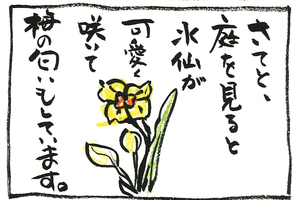 さてと、
庭を見ると
水仙が
可愛く
咲いて
梅の匂いもしています。